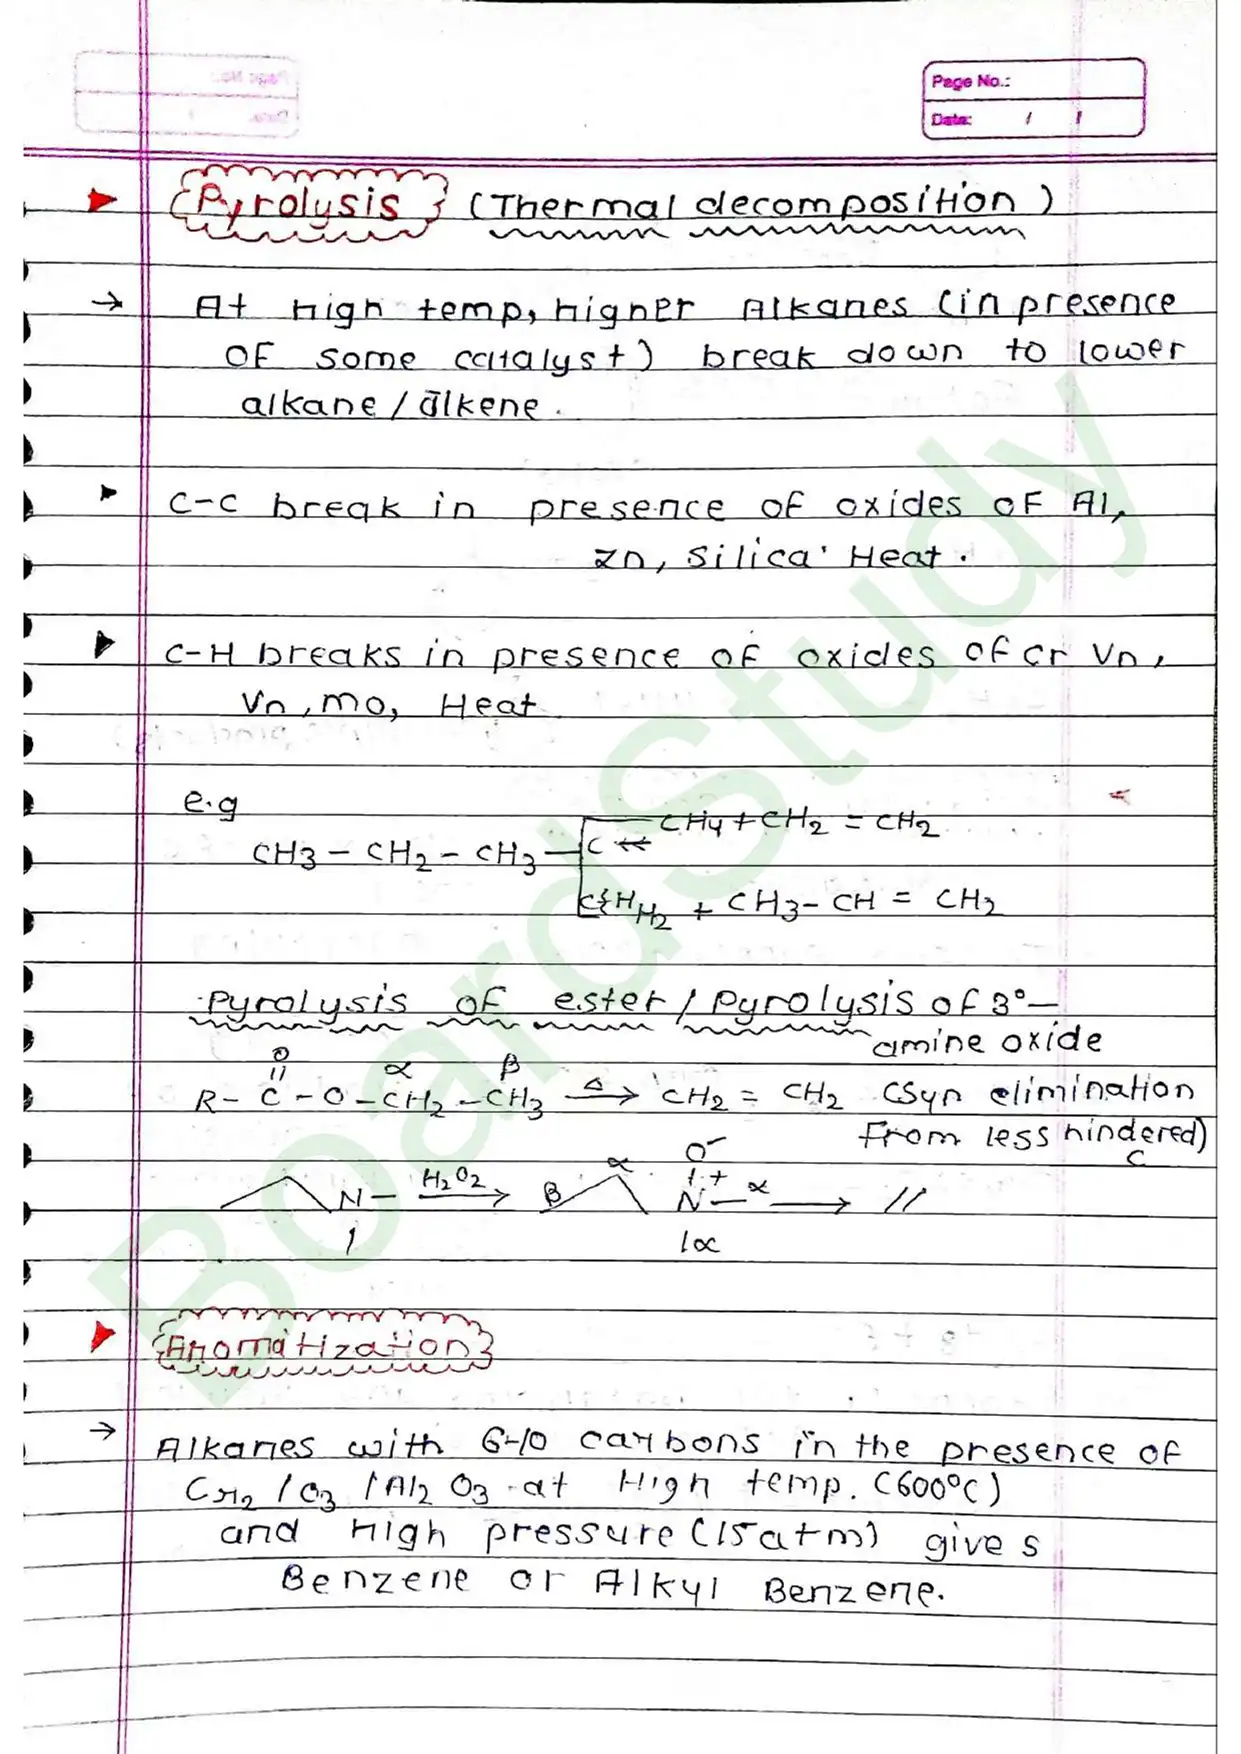 Page No.:
Date: / /
Pyrolysis (Thermal decomposition)
→ At High temp, higher Alkanes (in presence
OF some catalyst) break down to lower
alkane/alkene.
C-C break in presence of oxides of Al,
Zn, Silica' Heat.
C-H breaks in presence of oxides of Cr Vn,
Vn, mo, Heat
e.g
CH4 + CH2 = CH2
CH3 - CH2 - CH3
H2 + CH3 - CH = CH2
Pyrolysis of ester / Pyrolysis of 3°-
amine oxide
O α β
R - C - O - CH2 - CH3 Δ→ CH2 = CH2 (Syn elimination
From less hindered)
C
N - H2O2→ β α N O- + - α → //
| | α
Aromatization
→ Alkanes with 6-10 carbons in the presence of
Cr2/O3/Al2O3 at High temp. (600°C)
and High pressure (15atm) gives
Benzene or Alkyl Benzene.
BoardStudy